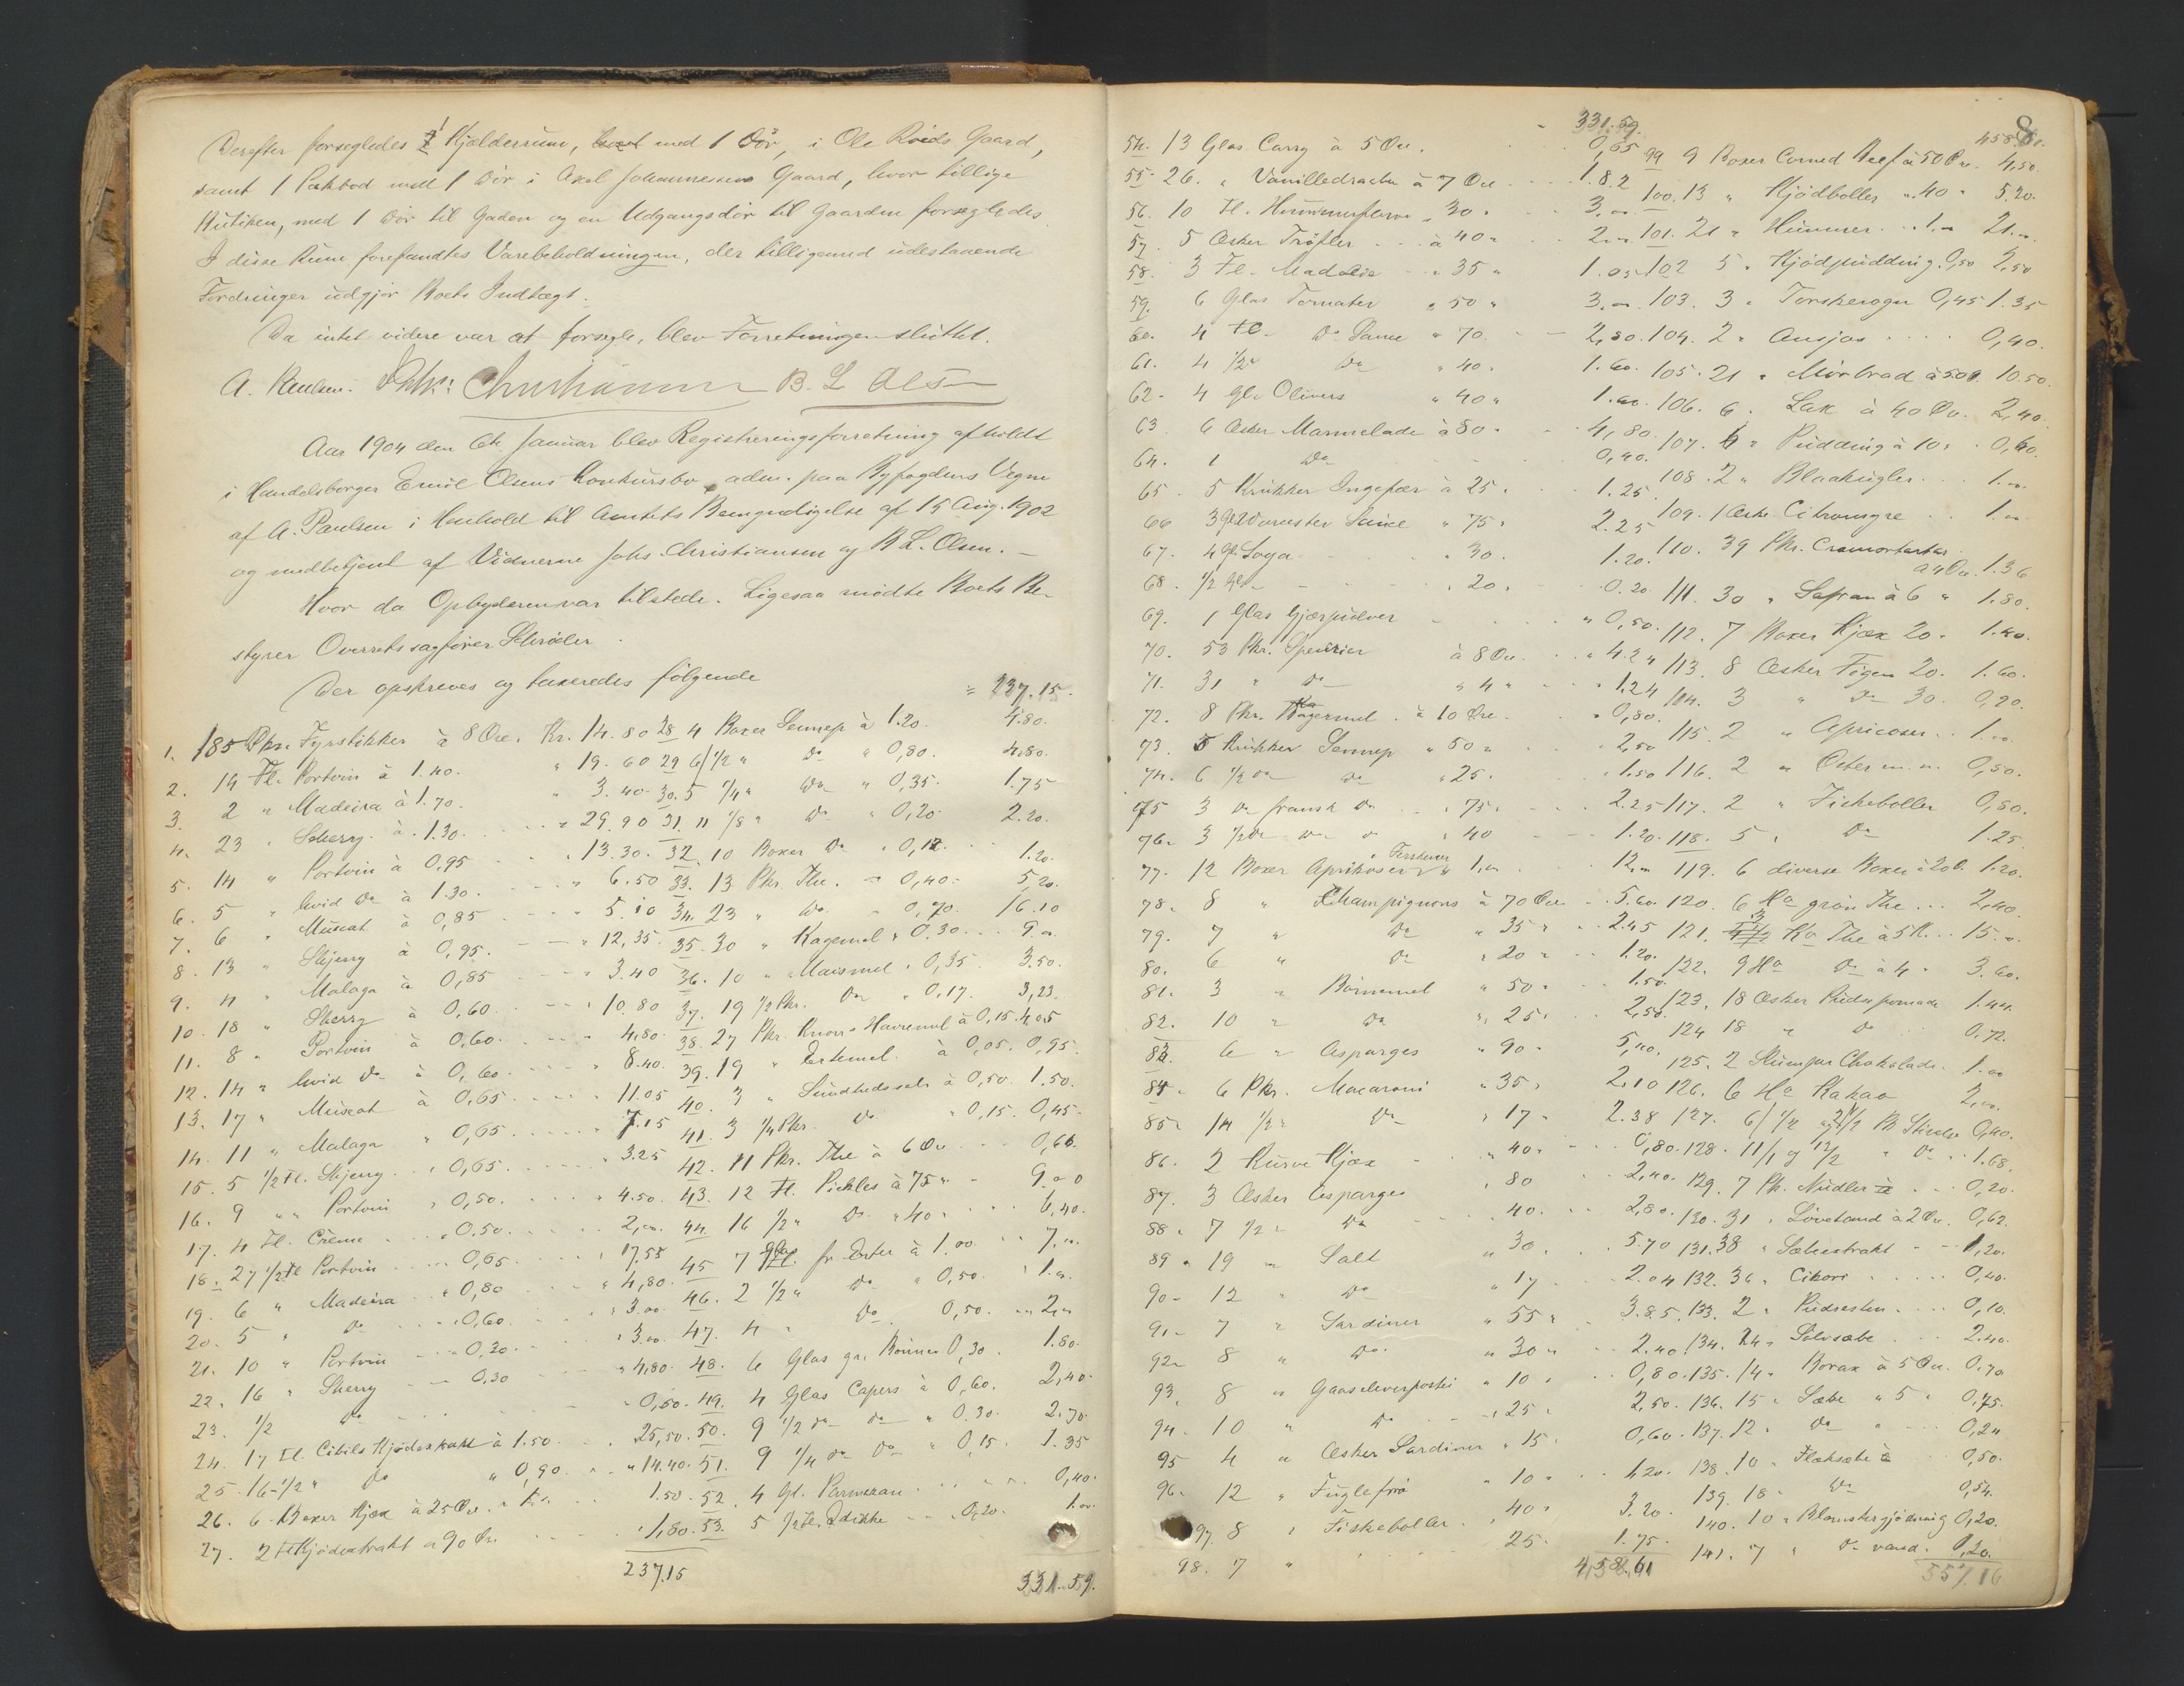 Derefter forsegledes 1 Kjælderrum, med 1 Dör, i Ole Roids Gaard,
samt 1 Pakbod med 1 Dör i Axel Johannessens Gaard, hvor tillige
Butiken, med 1 Dör til Gaden og en Udgangsdör til Gaarden forsegledes.
I disse Rum forefandtes Varebeholdningen, der tilligemed udestaaende
Fordringer udgjör Boets Indtægt.
Da intet videre var at forsegle, blev Forretningen sluttet.
A. Paulsen. Johs. Christiansen B. L. Olsen
Aar 1904 den 6te Januar blev Registreringsforretning afholdt
i Handelsborger Emil Olsens Konkursbo, adm. paa Byfogdens Vegne
af A. Paulsen i Henhold til Amtets Bemyndigelse af 15 Aug. 1902
og medbetjent af Vidnerne Johs. Christiansen og B. L. Olsen. –
Hvor da Opbyderen var tilstede. Ligesaa mödte Boets Be-
styrer Overretssagförer Schröder.
Der opskreves og taxeredes fölgende
1. 185 Pkr. Fyrstikker à 8 Öre. Kr. 14.80
2. 14 Fl. Portvin à 1.40. " 19.60
3. 2 " Madeira à 1.70. " 3.40
4. 23 " Scherry à 1.30. " 29.90
5. 14 " Portvin à 0,95 " 13.30
6. 5 " hvid Do à 1.30. " 6.50
7. 6 " Muscat à 0,85 " 5.10
8. 13 " Skjerry à 0,95. " 12,35
9. 4 " Malaga à 0,85 " 3.40
10. 18 " Sherry à 0,60 " 10.80
11. 8 " Portvin à 0,60. " 4,80
12. 14 " hvid Do à 0,60. " 8.40
13. 17 " Muscat à 0,65 " 11.05
14. 11 " Malaga " 0,65 " 7.15
15. 5 1/2 Fl. Skjerry " 0,65 " 3.25
16. 9 " " Portvin " 0,50. " 4.50
17. 4 Fl. Crême " 0.50. 2,00
18. 27 1/2 Fl Portvin 0,65 " 17,55
19. 6 " Madeira " 0,80 " 4,80
20. 5 " Do " 0,60. " 3.00
21. 10 " Portvin " 0,30. " 3.00
22. 16 " Sherry 0,30 " 4,80
23. 1/2 Do " 0,50
24. 17 Fl. Cibils Kjödextrakt à 1.50. 25,50
25. 16 1/2 " Do " 0,90 " 14.40
26. 6 Boxer Kjæx à 25 Öre 1.50
27. 2 Fl Kjödextrakt a 90 Öre " 1,80
237.15
= 237.15.
28 4 Boxer Sennep à 1.20. 4.80.
29 6 1/2 " Do " 0,80. 4.80.
30. 5 1/4 " Do " 0,35. 1.75
31. 11 1/8 " Do " 0,20. 2.20.
32. 10 Boxer Do " 0,12. 1.20.
33. 13 Pkr. The. 0,40. 5,20.
34. 23 " Do 0,70. 16.10
35. 30 " Kagemel " 0.30. 9.00
36. 10 " Maismel " 0,35. 3.50.
37. 19 1/2 Pkr. Do " 0,17. 3,23.
38. 27 Pkr. Knorrs Havremel à 0,15. 4,05
39. 19 " Ertemel. à 0,05. 0,95.
40. 3 " Sundhedssalt à 0,50. 1.50.
41. 3 1/4 Pkr. Do " 0,15. 0,45.
42. 11 Pkr. The à 6 Öre 0,66.
43. 12 Fl. Pickles à 75 " 9.00
44. 16 1/2 " Do " 40 " 6,40.
45 7 Glas fr. Erter à 1,00. 7,00
46. 2 1/2 " Do " 0,50. 1.00
47. 4 " Do 0,50. 2,00
48. 6 Glas gr. Bönner 0,30. 1.80.
49. 4 Glas Capers à 0,60. 2,40.
50. 9 1/2 do do " 0.30. 2.70.
51. 9 1/4 do do " 0,15. 1.35
52. 4 Gl. Parmesan 0,40.
53. 5 1/2 Fl. Eddikke 0,20. 1.00
331.59.
8
331.59.
54. 13 Glas Carry à 5 Öre. 0,65
55. 26. " Vanilledraabe à 7 Öre 1.82
56. 10 Fl. Hummerfarve " 30. 3,00
57. 5 Æsker Tröfler à 40 " 2.00
58. 3 Fl. Madeira " 35 " 1.05
59. 6 Glas Tomater " 50 " 3.00
60. 4 Fl. Do Sauce " 70. 2,80
61. 4 1/2 Do " 40. 1.60
62. 4 gl. Olivers " 40 " 1.60
63 6 Æsker Marmelade à 80. 4,80
64. 1 Do 0,40.
65. 5 Krukker Ingefær à 25. 1.25
66 3 Gl Worcester Sauce " 75 " 2.25
67. 4 Gl. Soya 30. 1.20.
68. 1/2 Gl " 20. 0.20
69. 1 Glas Gjærpulver " 0,50.
70. 53 Pkr. Specerier à 8 Öre. " 4.24
71. 31 " Do " 4 " 1.24
72. 8 Pkr. Kagemel à 10 Öre. " 0,80.
73. 5 Krukker Sennep " 50 " 2,50
74. 6 1/2 do do " 25. " 1.50
75 3 do fransk do " 75. 2.25
76. 3 1/2 do do " 40 1.20.
77. 12 Boxer Aprikoser " Ferskener 1,00 12,00
78. 8 " Champignons à 70 Öre 5.60
79. 7 " Do " 35 " 2.45
80. 6 " Do " 20 " 1.20.
81. 3 " Börnemel " 50 " 1.50.
82. 10 " Do " 25. 2,50.
83. 6 " Asparges " 90 " 5,40.
84. 6 Pkr. Macaroni " 35. 2,10
85. 14 1/2 " Do " 17 " 2.38
86. 2 Kurve Kjæx " 40. 0,80
87. 3 Æsker Asparges " 80 2,40.
88. 7 1/2 " Do 40. 2,80.
89. 19 " Salt " 30. 5.70
90. 12 " Do " 17 2.04
91. 7 " Sardiner " 55 " 3.85
92. 8 " Do. " 30 " 2.40
93. 8 " Gaaseleverpostei " 10 " 0,80
94. 10 " Do " 25. 2,50
95 4 " Æsker Sardiner " 15. 0,60
96. 12 " Fuglefrö " 10 " 1,20.
97. 8 " Fiskeboller " 40 " 3.20.
98. 7 " " 25. 1.75.
458.61
458.61.
99 9 Boxer Corned Beef à 50 Öre. 4,50.
100. 13 " Kjödboller " 40 " 5.20.
101. 21 " Hummer 1.00 21.00
102 5 " Kjödpudding. 0,50 2,50
103. 3 " Torskerogn 0,45 1.35
104. 2 " Ansjos 0,40.
105. 21 " Mörbrad à 50 Ö. 10.50.
106. 6. Lax à 40 Öre. 2,40.
107. 6 " Pudding à 10 " 0,60.
108. 2 " Blaakugler. 1.00
109. 1 Æske Citronsyre 1.00
110. 39 Pkr. Cremortartar
a 4 Öre. 1.56
111. 30 " Safran à 6 " 1.80.
112. 7 Boxer Kjæx 20. 1.40.
113. 8 Æsker Figen 20. 1.60.
114. 3 " Do 30. 0,90.
115. 2 " Apricoser 1.00
116. 2 " Oster m. m. 0,50.
117. 2 " Fiskeboller 0,80.
118. 5 " Do 1.25
119. 6 diverse Boxer à 20 Ö. 1.20.
120. 6 Ha grön The 2,40.
121. 3 Ko The à 5 K. 15.00
122. 9 Ha Do à 4 " 3.60.
123. 18 Æsker Pudsepomade 1.44.
124 18 " Do 0.72.
125. 2 Stumper Chokolade. 1.00
126. 6 Ha Kakao 2,00
127. 6/1/2 og 21/2 B Stivelse 0,40.
128. 11/1 og 12/2 " Do 1.68.
129. 7 Pk. Nudler 0,20.
130. 31 " Lövetand à 2 Öre. 0,62.
131. 38 " Sæbeextrakt 1,20.
132. 36 " Cikori 0,40.
133. 2 " Pudsesten 0,10.
134. 24 " Sölvsæbe 2.40.
135. 14 " Borax à 5 Öre. 0.70
136. 15 " Sæbe " 5 " 0,75.
137. 12 " Do " 0,24
138. 10 " Flaksæbe 0,50.
139. 18 " Do 0,54.
140. 10 " Blomstergjödning 0,20.
141. 7 " Do vand. 0,20.
551.16